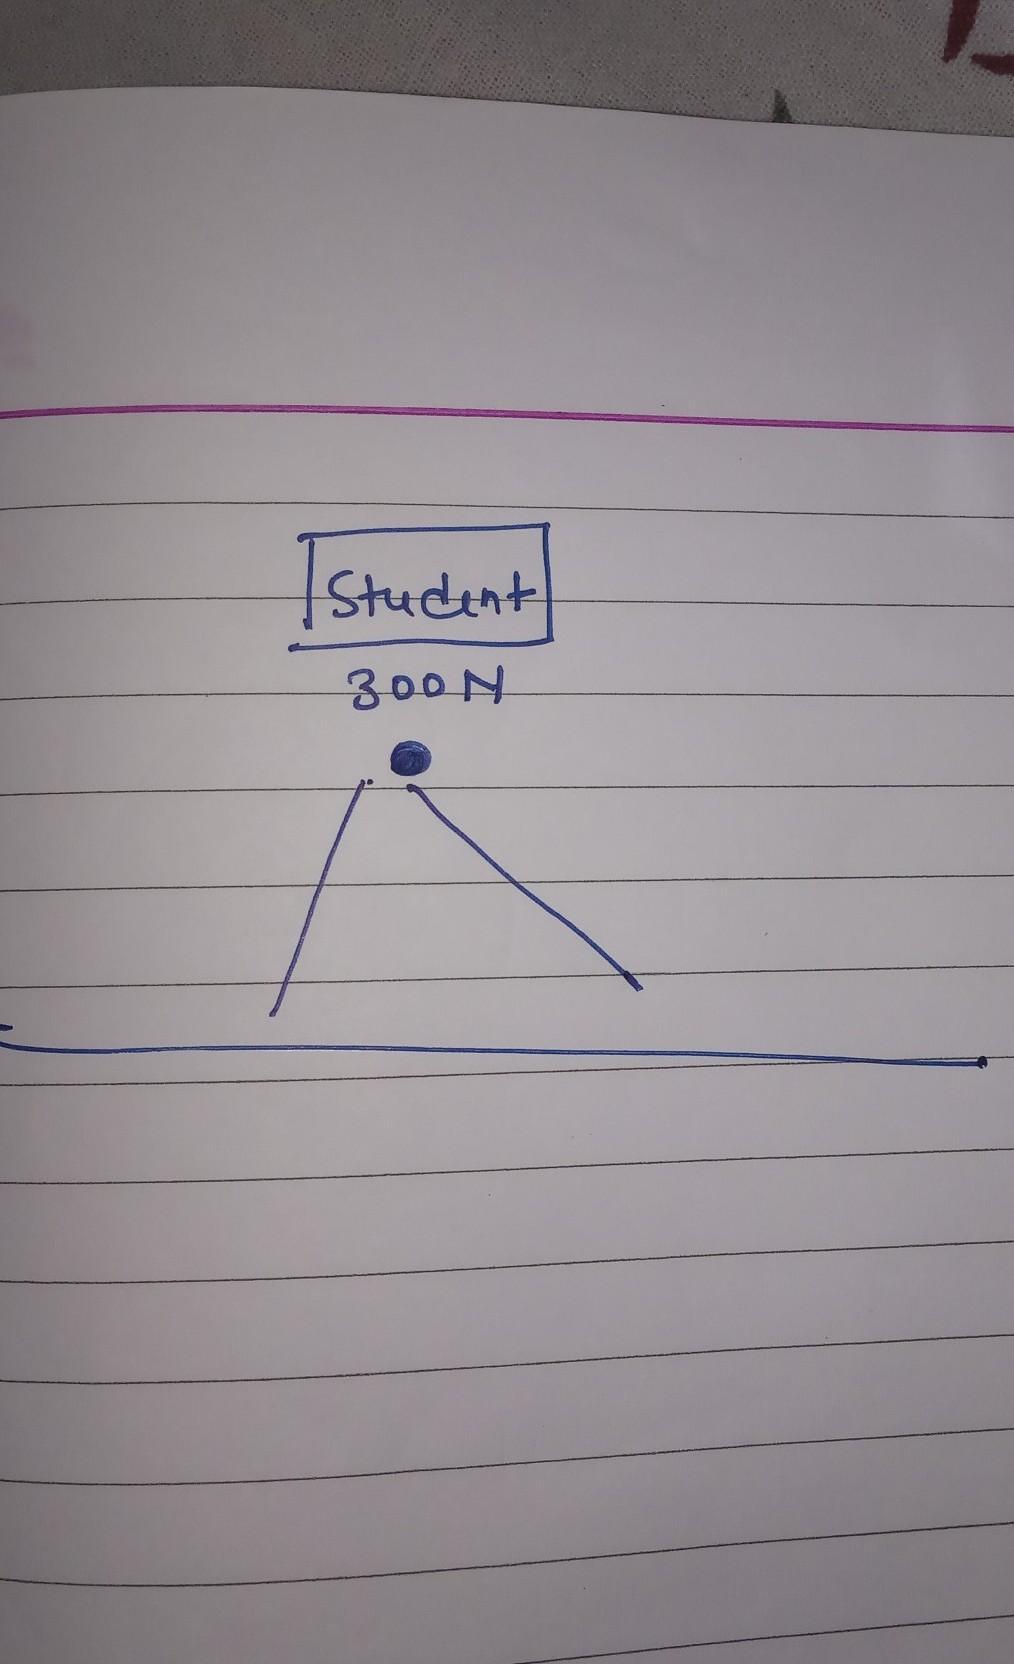 Student
300N